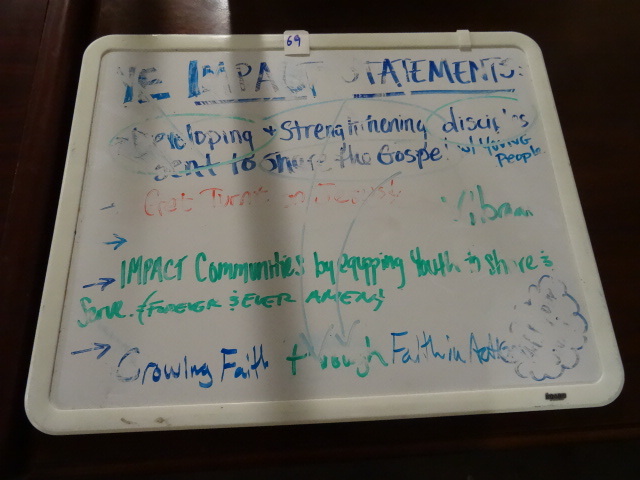 69
YE IMPACT STATEMENTS:
Developing + Strengthnening disciples
sent to share the Gospel w/ YOUNG
People
Turnt
→
→ IMPACT Communities by equpping Youth to share &
Serve. (FOREVER & EVER AMEN!)
→ Growing Faith through Faith in Action